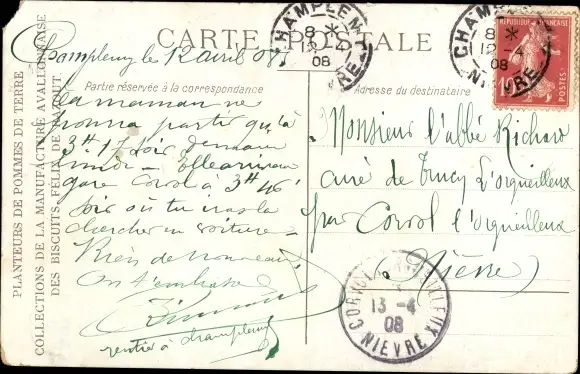 PLANTEURS DE POMMES DE TERRE
COLLECTIONS DE LA MANUFACTURE AVALLONNAISE
DES BISCUITS FÉLIX DE
CARTE POSTALE
Champlemy le 12 avril 08
Partie réservée à la correspondance
Ta maman ne
pourra partir qu'à
3h.17 soir demain
lundi - Elle arrivera
gare Corvol à 3h46
soir où tu iras la
chercher en voiture -
Rien de nouveau
On t'embrasse
rentier à Champlemy
CHAMPLEMY
8 *
12 - 4
08
NIÈVRE
Adresse du destinataire
Monsieur l'abbé Richard
curé de Trucy l'Orgueilleux
par Corvol l'Orgueilleux
(Nièvre)
CHAMPLEMY
8 *
12 - 4
08
NIÈVRE
RÉPUBLIQUE FRANÇAISE
10
POSTES
CORVOL L'ORGUEILLEUX
13 - 4
08
NIEVRE